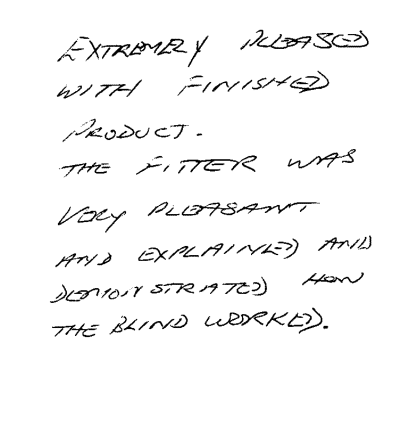 EXTREMELY PLEASED
WITH FINISHED
PRODUCT.
THE FITTER WAS
VERY PLEASANT
AND EXPLAINED AND
DEMONSTRATED HOW
THE BLIND WORKED.